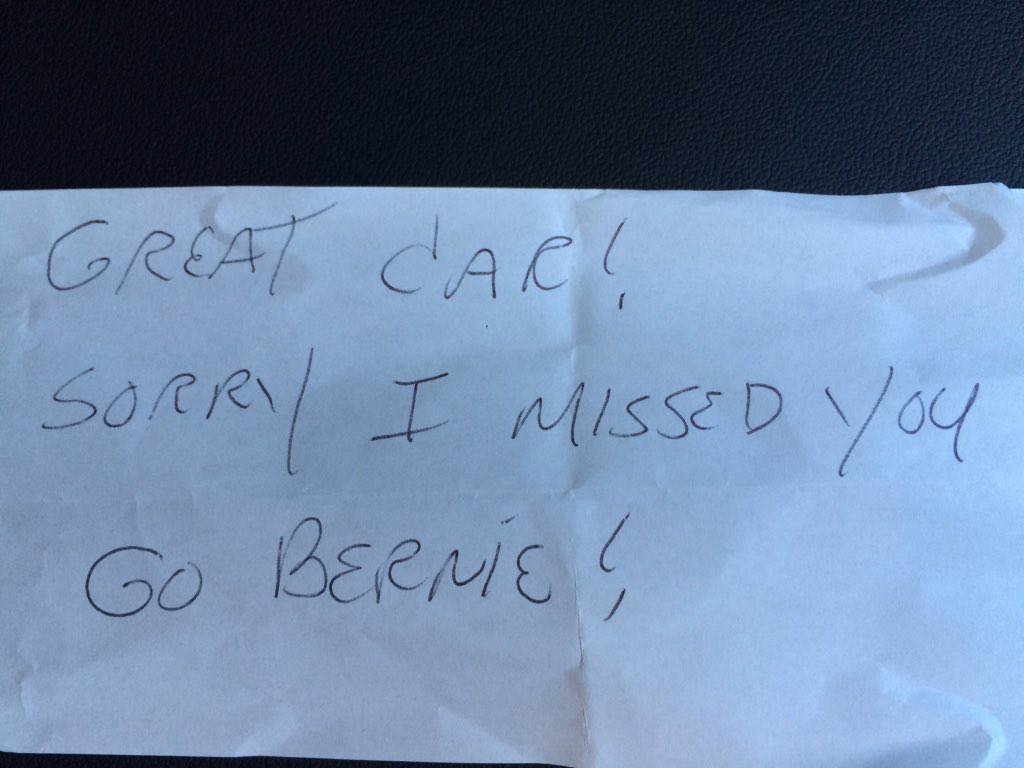 GREAT CAR!
SORRY I MISSED YOU
GO BERNIE!